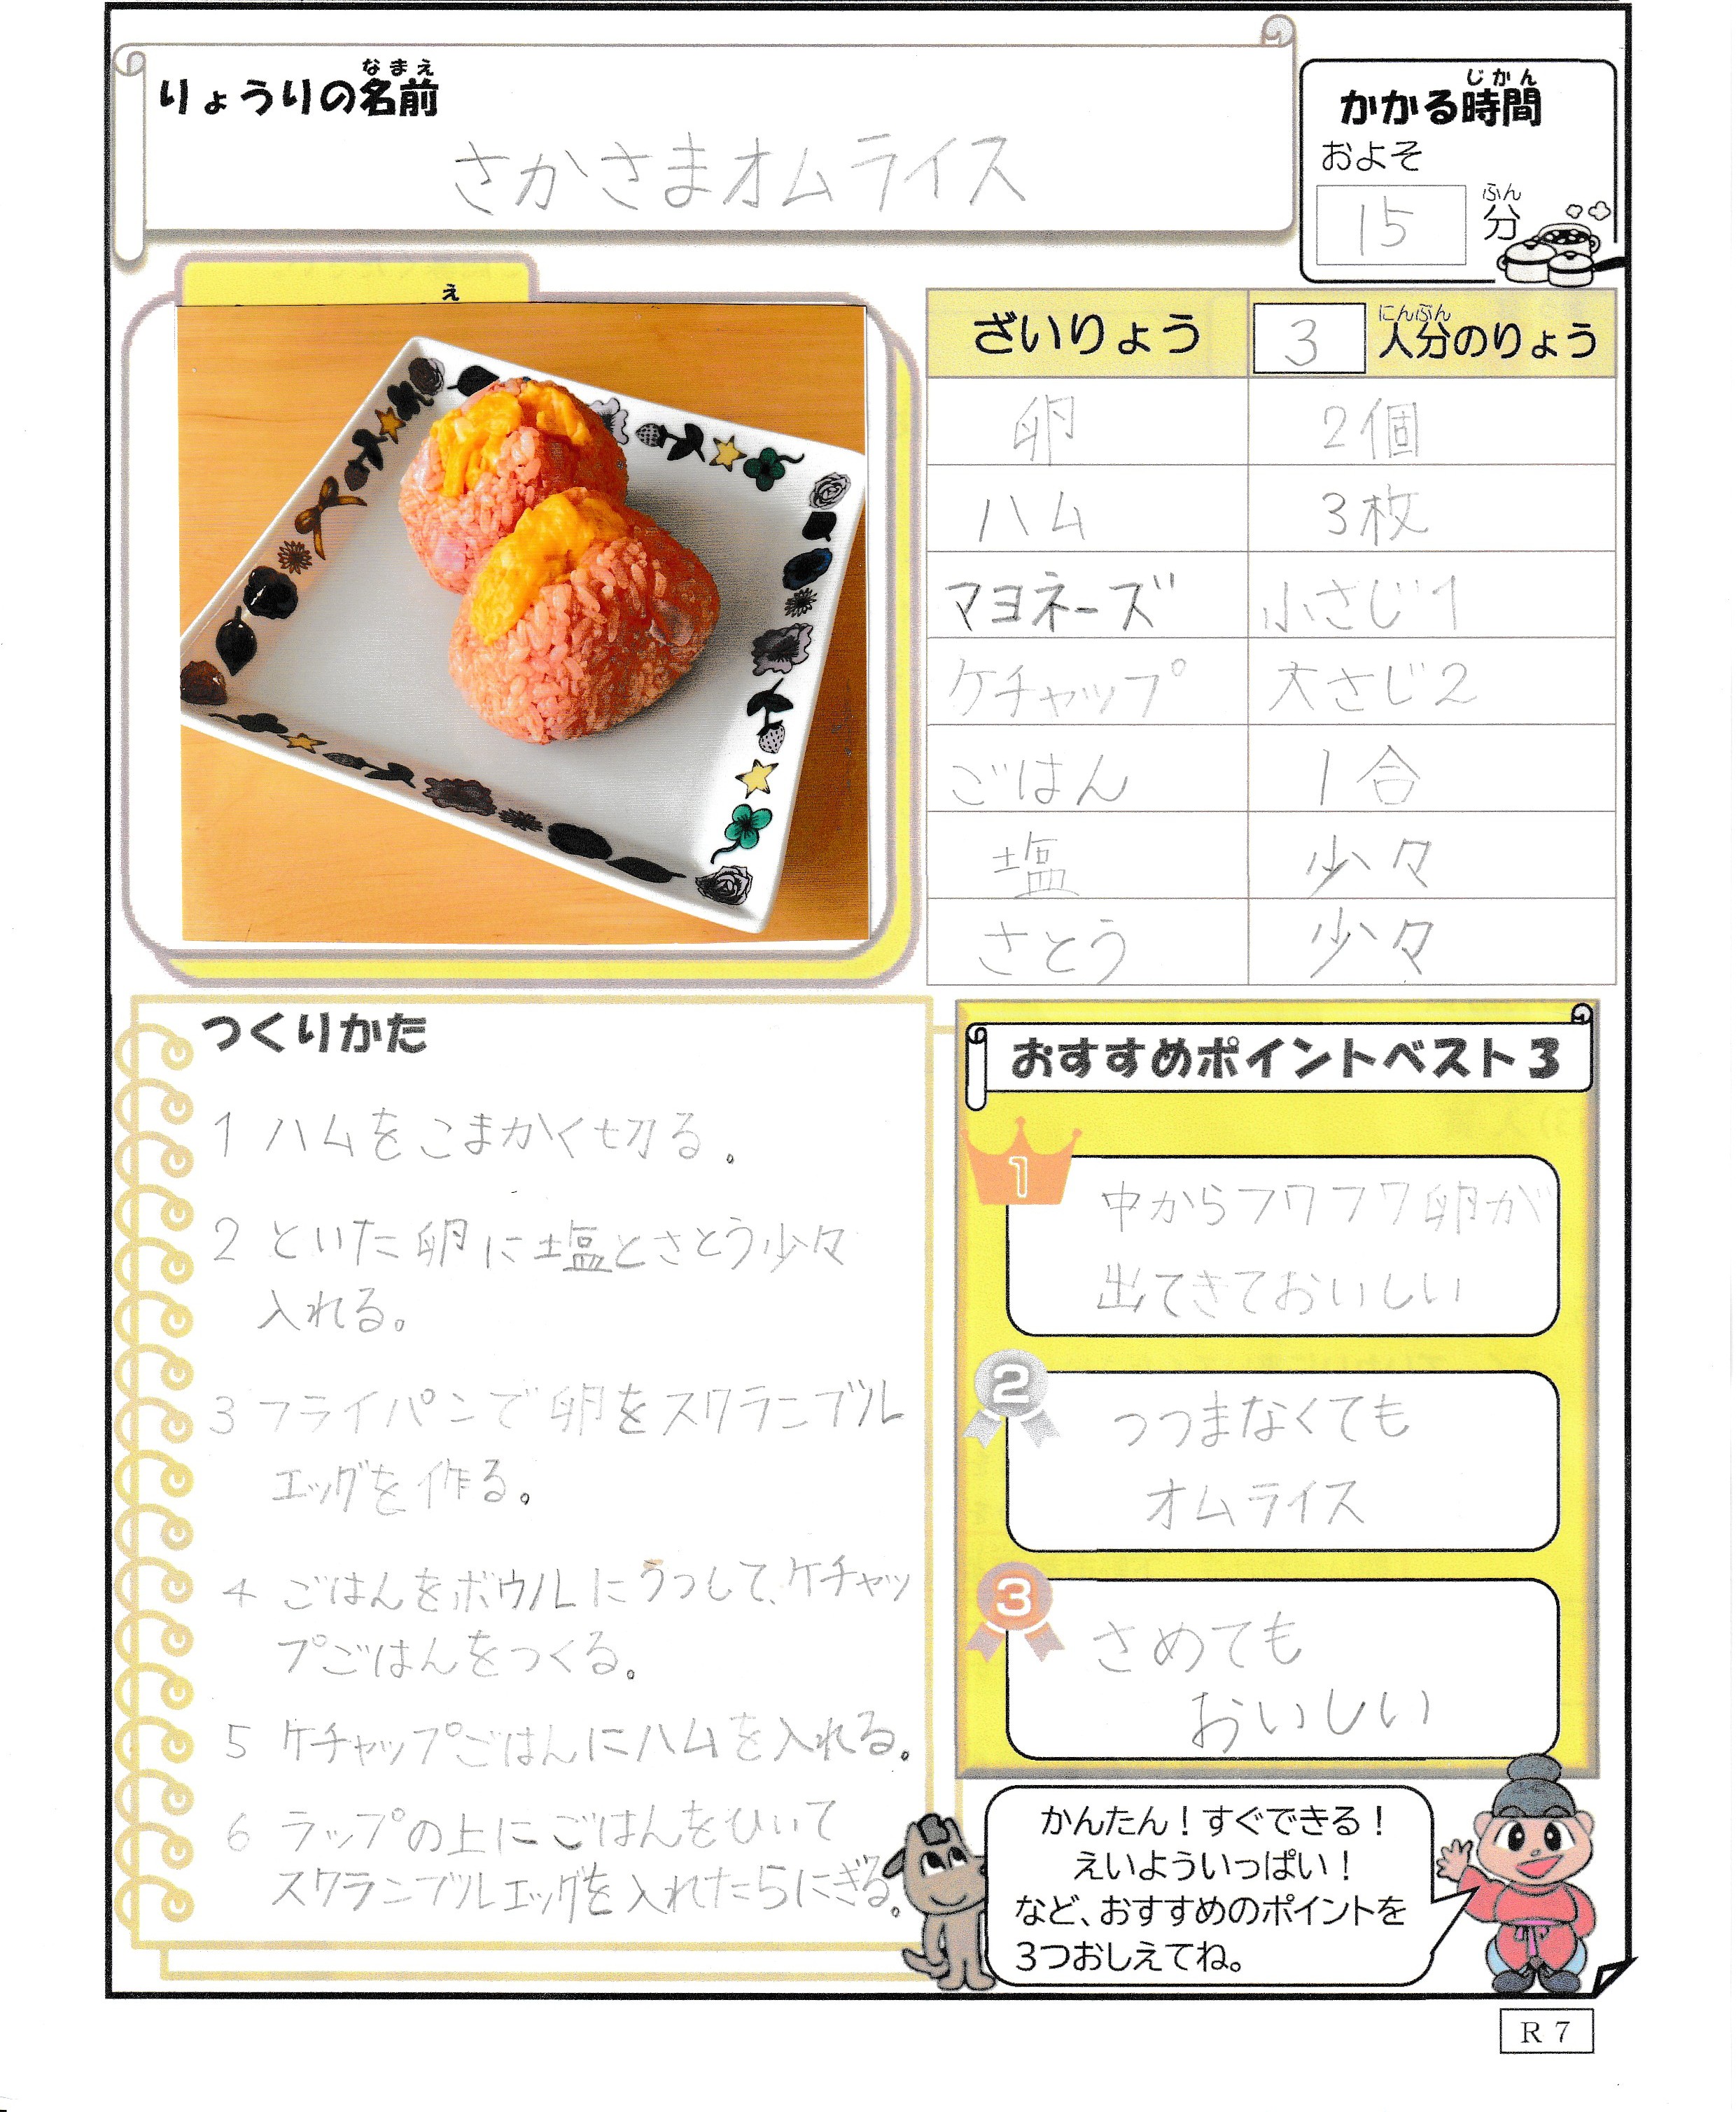 りょうりの名前
なまえ
さかさまオムライス
かかる時間
じかん
およそ
15
分
ふん
え
ざいりょう
3
人分のりょう
にんぶん
卵 2個
ハム 3枚
マヨネーズ 小さじ1
ケチャップ 大さじ2
ごはん 1合
塩 少々
さとう 少々
つくりかた
1 ハムをこまかく切る。
2 といた卵に塩とさとう少々
入れる。
3 フライパンで卵をスクランブル
エッグを作る。
4 ごはんをボウルにうつして、ケチャッ
プごはんをつくる。
5 ケチャップごはんにハムを入れる。
6 ラップの上にごはんをひいて
スクランブルエッグを入れたらにぎる。
おすすめポイントベスト3
1
中からフワフワ卵が
出てきておいしい
2
つつまなくても
オムライス
3
さめても
おいしい
かんたん！すぐできる！
えいよういっぱい！
など、おすすめのポイントを
3つおしえてね。
R 7